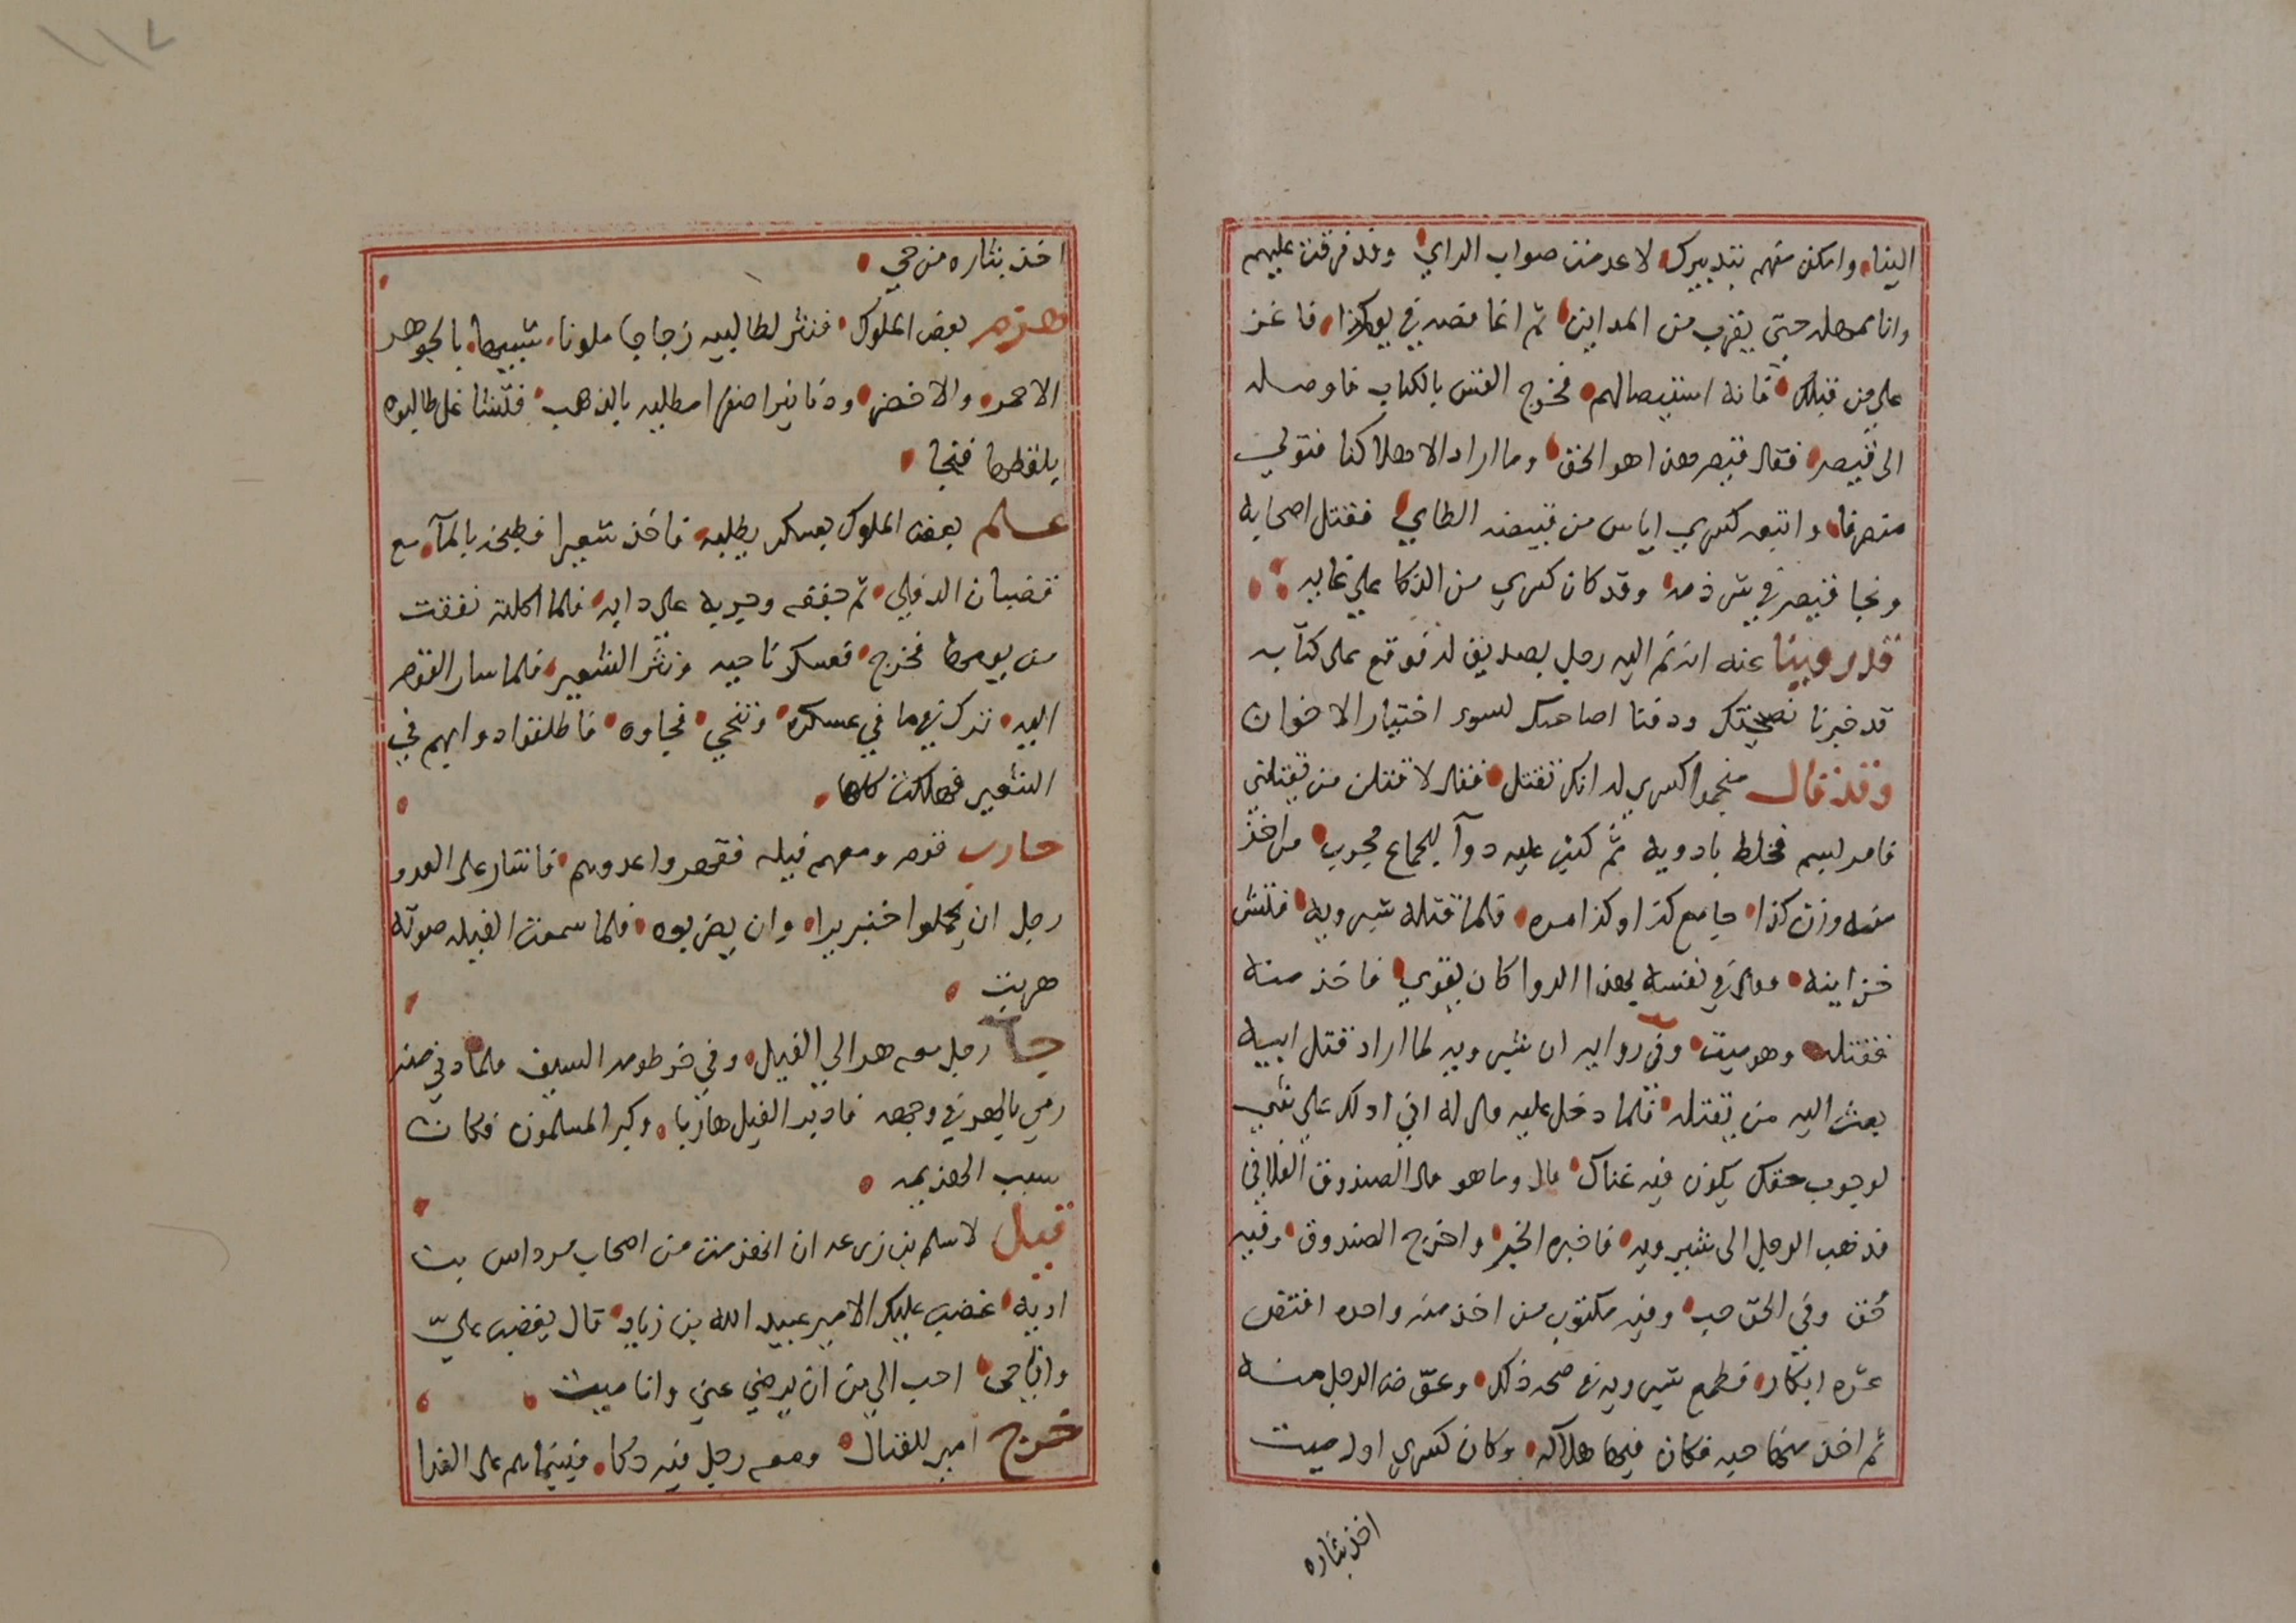 الينا وامكن منهم بتدبيرك لا عدمنت صواب الراي وقد فرقت عليهم
وانا ممهله حتى يقرب من المداين ثم اغافصه في يوم كذا فاغز
على من قبلك فانه استيصالهم فخرج القس بالكتاب فاوصله
الى قيصر فقال قيصر هذا هو الحق وما اراد الا هلاكنا فتولى
منصرفا واتبعه كسري اياس بن قبيصه الطاي فقتل اصحابه
ونجا قيصر في شرذمه وقد كان كسري من الذكا على غايه
قد روينا عنه انه نم اليه رجل بصديق له فوقع على كتابه
قد خبرنا نصحتك وذمنا صاحبك لسوء اختيار الاخوان
وقد قال منجموا كسري له انك تقتل فقال لاقتلن من يقتلني
فامر بسم فخلط بادويه ثم كتب عليه دوآ للجماع مجرب من اخذ
منه وزن كذا جامع كذا وكذا مره فلما قتله شيرويه فتش
خزاينه فقال في نفسه بهذا الدوا كان يقوي فاخذ منه
فقتله وهو ميت وفي روايه ان شيرويه لما اراد قتل ابيه
بعث اليه من يقتله فلما دخل عليه قال له اني ادلك على شي
لوجوب حقك يكون فيه غناك قال وما هو قال الصندوق الفلاني
فذهب الرجل الى شيرويه فاخبره الخبر واخرج الصندوق وفيه
حُق وفي الحق حب وفيه مكتوب من اخذ منه واحده افتض
عشره ابكار فطمع شيرويه في صحه ذلك وعوّض الرجل منه
ثم اخذ منها حبه فكان فيها هلاكه وكان كسري اول ميت
اخذ بثاره
١١٢
اخذ بثاره من حي
هزم بعض الملوك فنثر لطالبيه زجاجا ملونا شبيها بالجوهر
الاحمر والاخضر ودنانيرا صفرا مطليه بالذهب فتشاغل طالبوه
يلقطها فنجا
علم بعض الملوك بعسكر يطلبه فاخذ شعيرا فطبخه بالمآ مع
قضبان الدفلى ثم جففه وجربه على دابه فلما اكلته نفقت
من يومها فخرج فعسكر ناحيه ونثر الشعير فلما سار القوم
اليه ترك لهم ما في عسكره وتنحي فجاوه فاطلقوا دوابهم في
الشعير فهلكت كلها
حارب قوم ومعهم فيله فقهروا عدوهم فاشار على العدو
رجل ان يحملوا خنزيرا وان يضربوه فلما سمعت الفيله صوته
هربت
جا رجل معه هر الى الفيل وفي خرطومه السيف فلما دني منه
رمي بالهر في وجهه فادبر الفيل هاربا وكبر المسلمون فكان
سبب الهزيمه
قيل لاسلم بن زرعه ان انهزمت من اصحاب مرداس بن
اديه غضب عليك الامير عبيد الله بن زياد قال يغضب عليّ
وانا حى احب الي من ان يرضي عني وانا ميت
خرج امير للقتال ومعه رجل فيه ذكا فبينما هم على الغدا